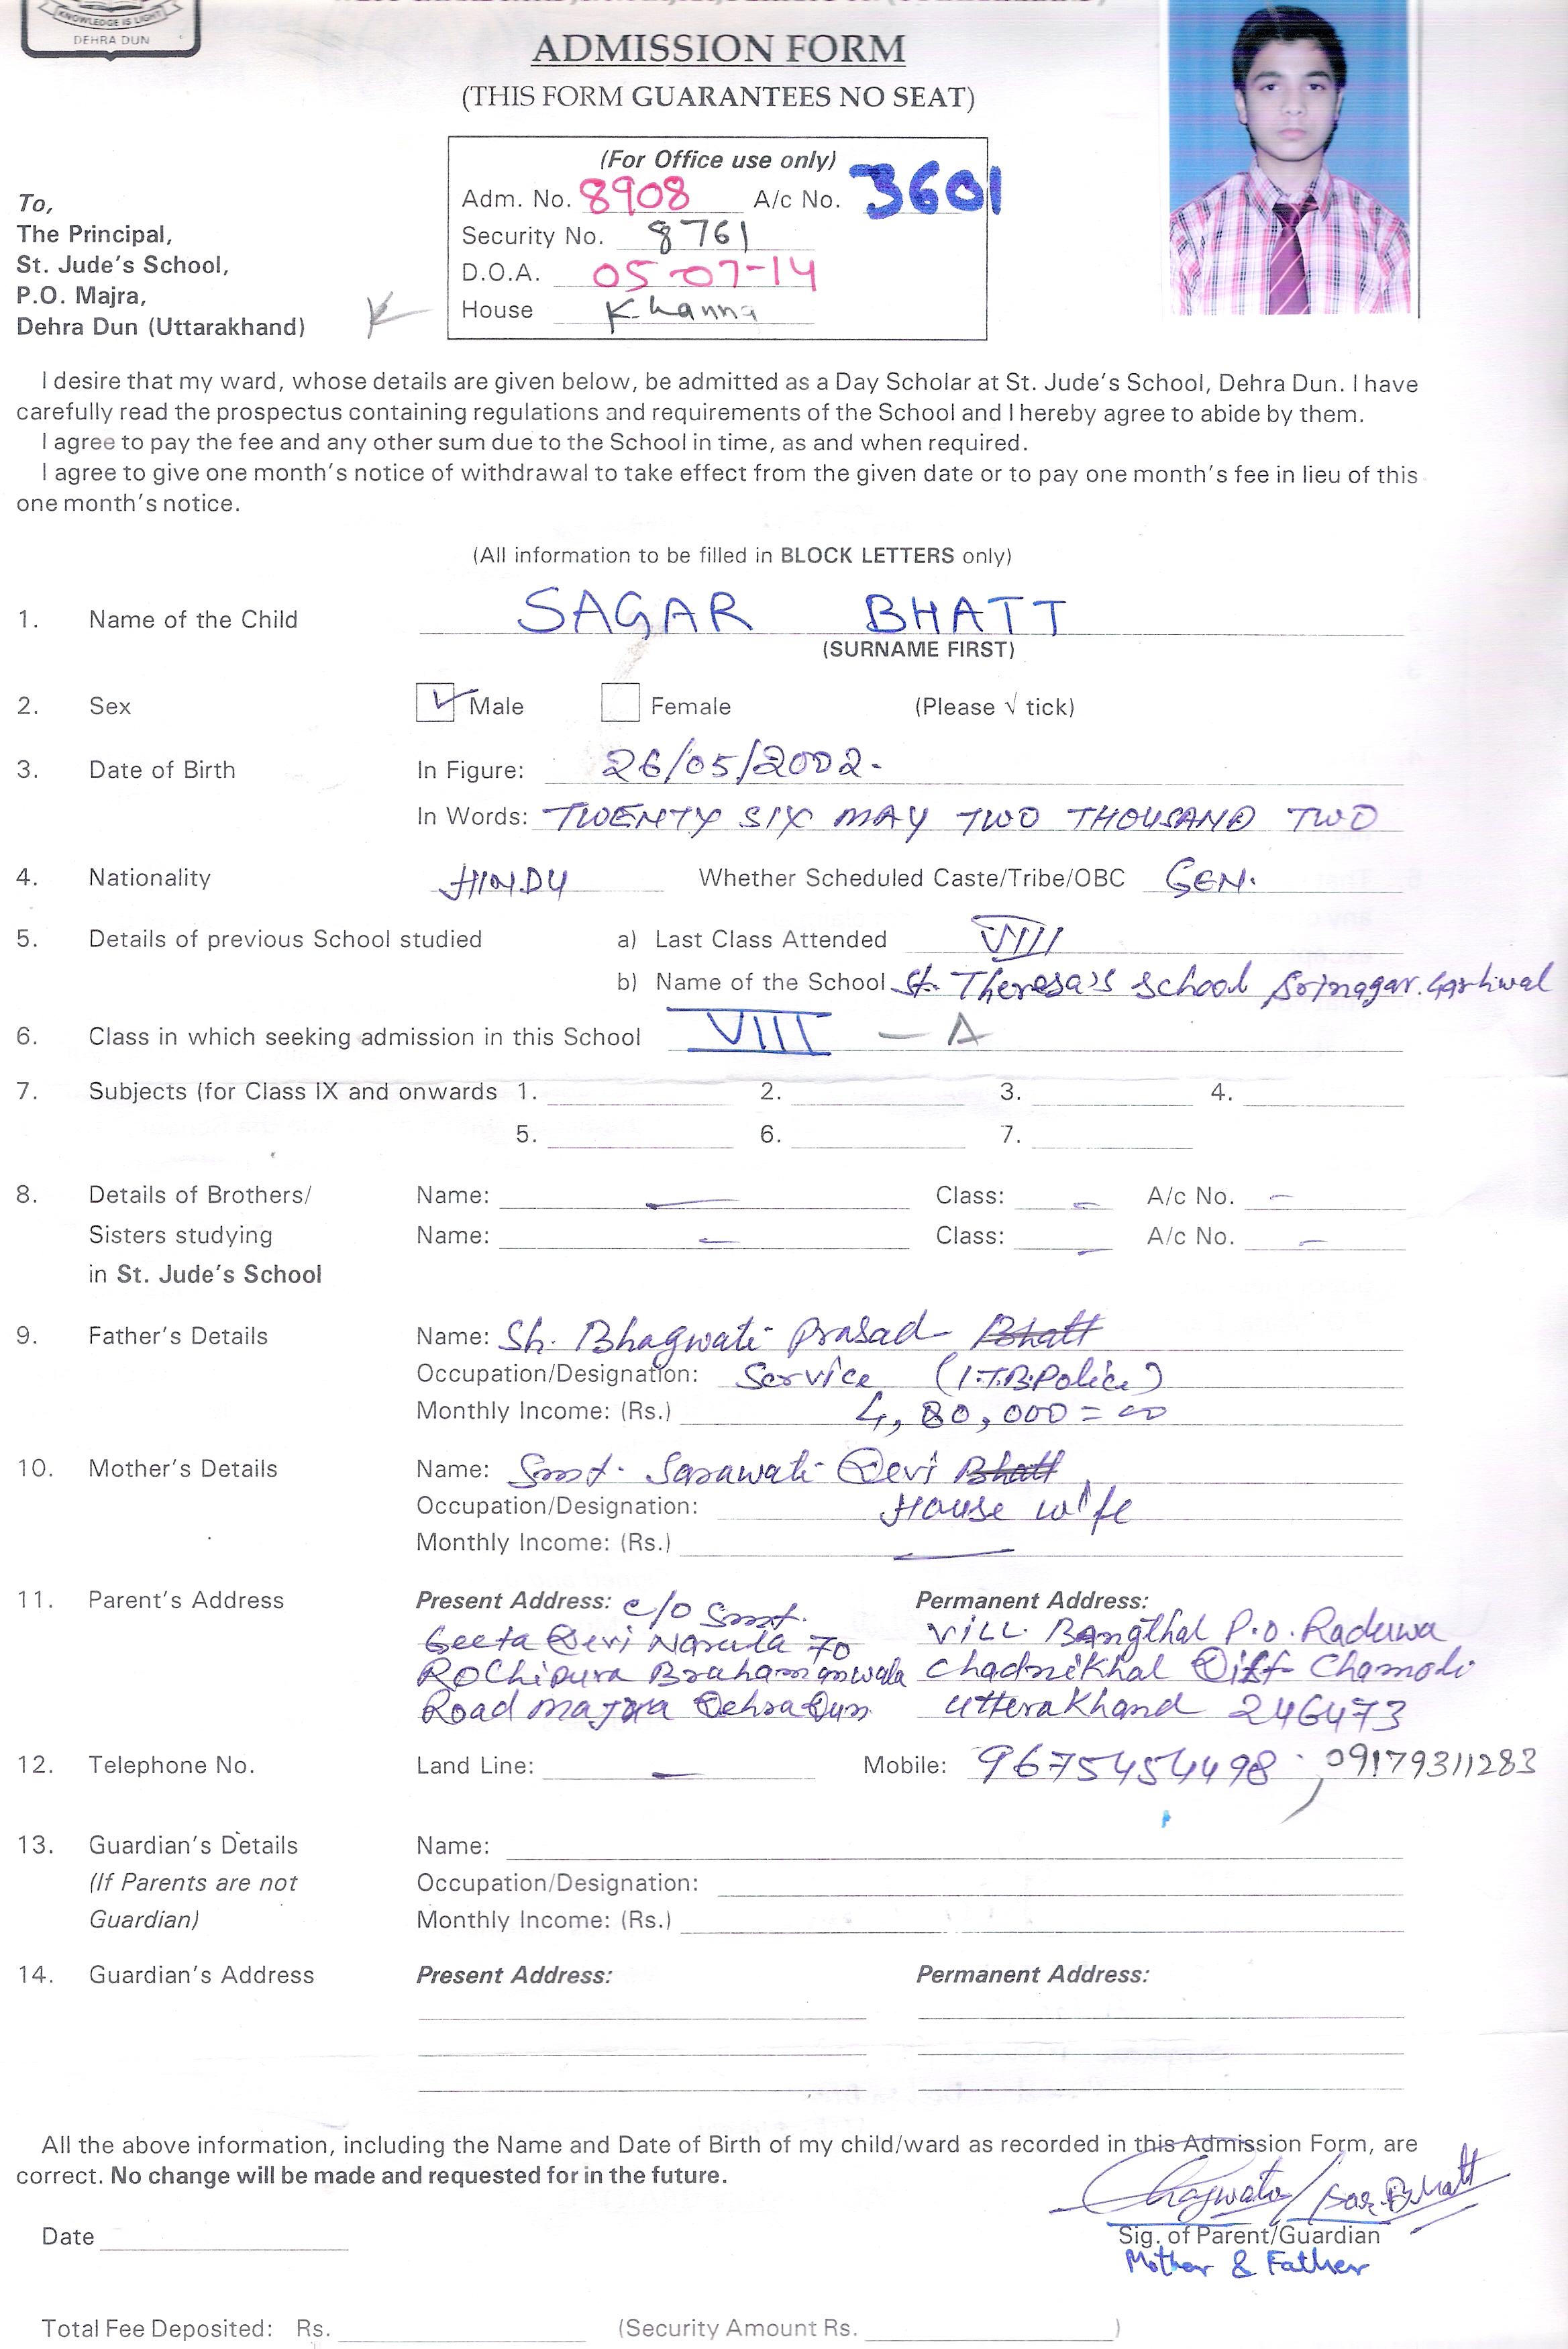 KNOWLEDGE IS LIGHT
DEHRA DUN
ADMISSION FORM
(THIS FORM GUARANTEES NO SEAT)
(For Office use only)
Adm. No. 8908 A/c No. 3601
Security No. 8761
D.O.A. 05-07-14
House Khanna
To,
The Principal,
St. Jude's School,
P.O. Majra,
Dehra Dun (Uttarakhand)
K
I desire that my ward, whose details are given below, be admitted as a Day Scholar at St. Jude's School, Dehra Dun. I have
carefully read the prospectus containing regulations and requirements of the School and I hereby agree to abide by them.
I agree to pay the fee and any other sum due to the School in time, as and when required.
I agree to give one month's notice of withdrawal to take effect from the given date or to pay one month's fee in lieu of this
one month's notice.
(All information to be filled in BLOCK LETTERS only)
1. Name of the Child SAGAR BHATT
(SURNAME FIRST)
2. Sex ✓ Male Female (Please √ tick)
3. Date of Birth In Figure: 26/05/2002.
In Words: TWENTY SIX MAY TWO THOUSAND TWO
4. Nationality HINDU Whether Scheduled Caste/Tribe/OBC GEN.
5. Details of previous School studied a) Last Class Attended VIII
b) Name of the School St. Theresa's School Srinagar. Garhwal
6. Class in which seeking admission in this School VIII - A
7. Subjects (for Class IX and onwards 1. 2. 3. 4.
5. 6. 7.
8. Details of Brothers/ Name: — Class: — A/c No. —
Sisters studying Name: — Class: — A/c No. —
in St. Jude's School
9. Father's Details Name: Sh. Bhagwati Prasad Bhatt
Occupation/Designation: Service (I.T.B.Police)
Monthly Income: (Rs.) 4,80,000=00
10. Mother's Details Name: Smt. Sarawati Devi Bhatt
Occupation/Designation: House wife
Monthly Income: (Rs.) —
11. Parent's Address Present Address: c/o Smt. Permanent Address:
Geeta Devi Narula 70 VILL. Bangthal P.O. Raduwa
ROchipura Brahamanwala Chadnikhal Distt Chamoli
Road Majra DehraDun Utterakhand 246473
12. Telephone No. Land Line: — Mobile: 9675454498, 09179311283
13. Guardian's Details Name:
(If Parents are not Occupation/Designation:
Guardian) Monthly Income: (Rs.)
14. Guardian's Address Present Address: Permanent Address:
All the above information, including the Name and Date of Birth of my child/ward as recorded in this Admission Form, are
correct. No change will be made and requested for in the future.
Bhatt
Date Sig. of Parent/Guardian
Mother & Father
Total Fee Deposited: Rs. (Security Amount Rs. )